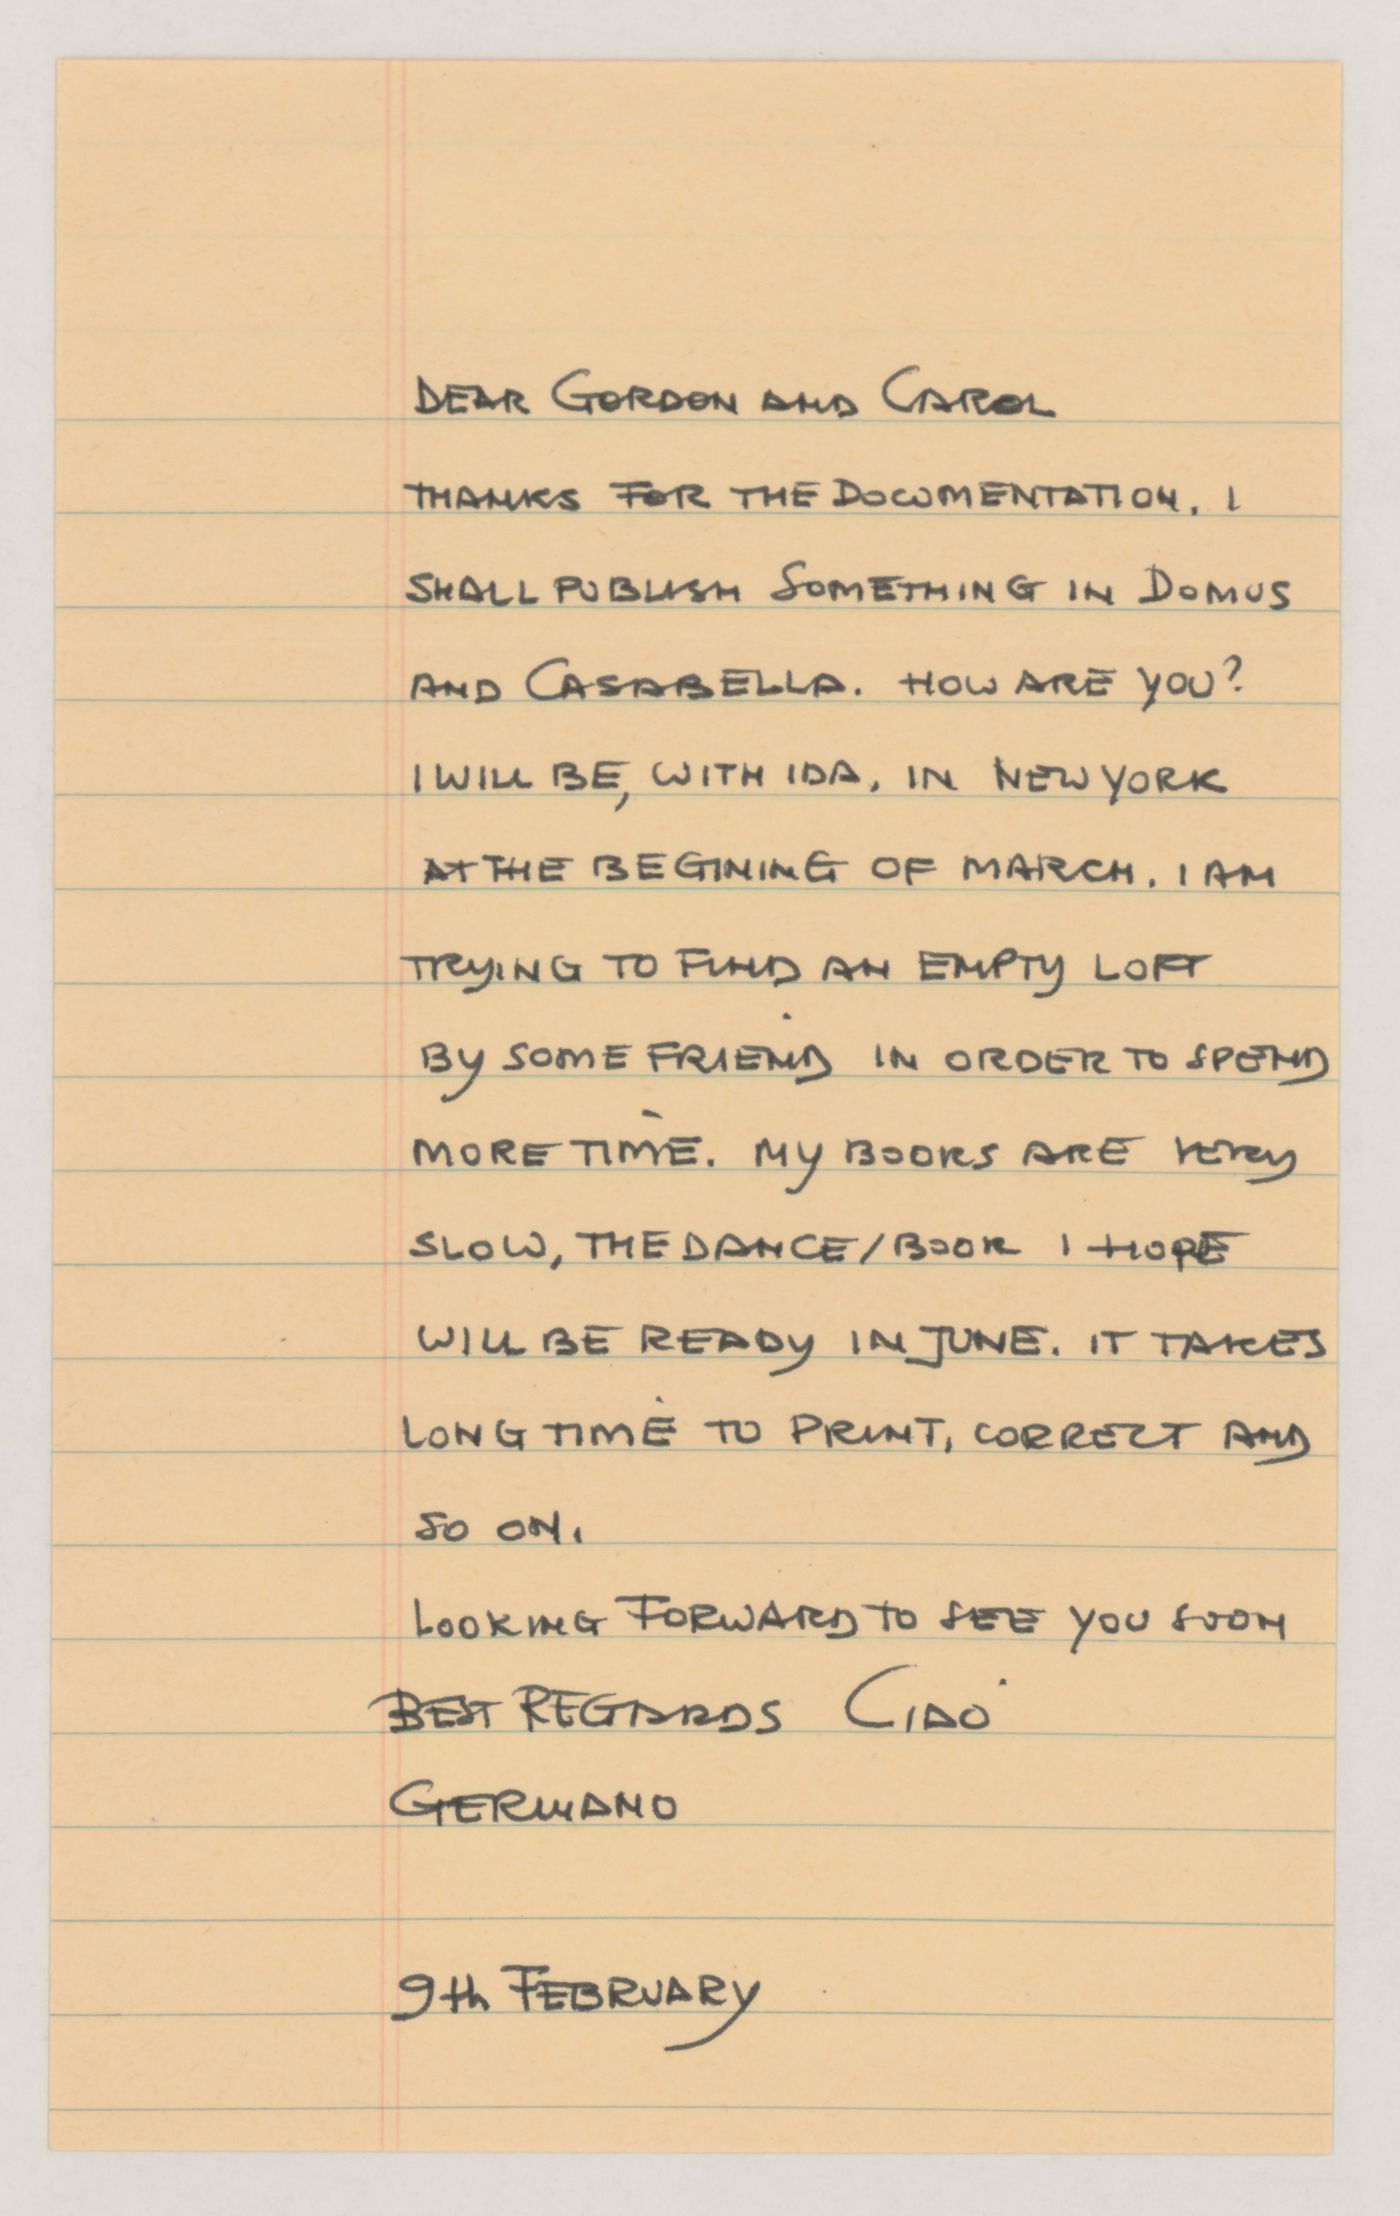 DEAR GORDON AND CAROL
THANKS FOR THE DOCUMENTATION. I
SHALL PUBLISH SOMETHING IN DOMUS
AND CASABELLA. HOW ARE YOU?
I WILL BE, WITH IDA, IN NEW YORK
AT THE BEGINING OF MARCH. I AM
TRYING TO FIND AN EMPTY LOFT
BY SOME FRIEND IN ORDER TO SPEND
MORE TIME. MY BOOKS ARE VERY
SLOW, THE DANCE/BOOK I HOPE
WILL BE READY IN JUNE. IT TAKES
LONG TIME TO PRINT, CORRECT AND
SO ON.
LOOKING FORWARD TO SEE YOU SOON
BEST REGARDS CIAO
GERMANO
9th FEBRUARY